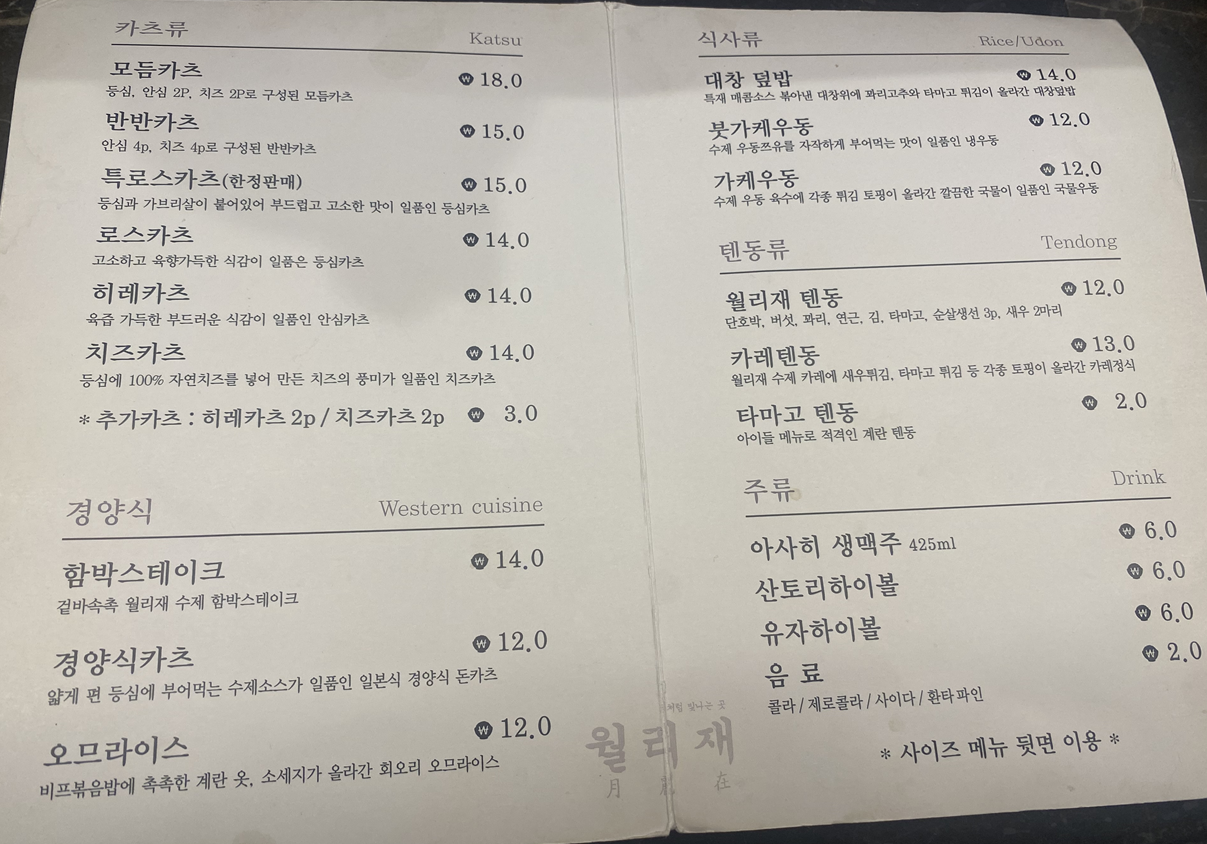 카츠류 Katsu
모듬카츠 ₩ 18.0
등심, 안심 2P, 치즈 2P로 구성된 모듬카츠
반반카츠 ₩ 15.0
안심 4p, 치즈 4p로 구성된 반반카츠
특로스카츠(한정판매) ₩ 15.0
등심과 가브리살이 붙어있어 부드럽고 고소한 맛이 일품인 등심카츠
로스카츠 ₩ 14.0
고소하고 육향가득한 식감이 일품은 등심카츠
히레카츠 ₩ 14.0
육즙 가득한 부드러운 식감이 일품인 안심카츠
치즈카츠 ₩ 14.0
등심에 100% 자연치즈를 넣어 만든 치즈의 풍미가 일품인 치즈카츠
* 추가카츠 : 히레카츠 2p / 치즈카츠 2p ₩ 3.0
경양식 Western cuisine
함박스테이크 ₩ 14.0
겉바속촉 월리재 수제 함박스테이크
경양식카츠 ₩ 12.0
얇게 편 등심에 부어먹는 수제소스가 일품인 일본식 경양식 돈카츠
오므라이스 ₩ 12.0
비프볶음밥에 촉촉한 계란 옷, 소세지가 올라간 회오리 오므라이스
식사류 Rice/Udon
대창 덮밥 ₩ 14.0
특재 매콤소스 볶아낸 대창위에 꽈리고추와 타마고 튀김이 올라간 대창덮밥
붓가케우동 ₩ 12.0
수제 우동쯔유를 자작하게 부어먹는 맛이 일품인 냉우동
가케우동 ₩ 12.0
수제 우동 육수에 각종 튀김 토핑이 올라간 깔끔한 국물이 일품인 국물우동
텐동류 Tendong
월리재 텐동 ₩ 12.0
단호박, 버섯, 꽈리, 연근, 김, 타마고, 순살생선 3p, 새우 2마리
카레텐동 ₩ 13.0
월리재 수제 카레에 새우튀김, 타마고 튀김 등 각종 토핑이 올라간 카레정식
타마고 텐동 ₩ 2.0
아이들 메뉴로 적격인 계란 텐동
주류 Drink
아사히 생맥주 425ml ₩ 6.0
산토리하이볼 ₩ 6.0
유자하이볼 ₩ 6.0
음 료 ₩ 2.0
콜라 / 제로콜라 / 사이다 / 환타파인
* 사이즈 메뉴 뒷면 이용 *
빛나는 곳
월리재
月 在